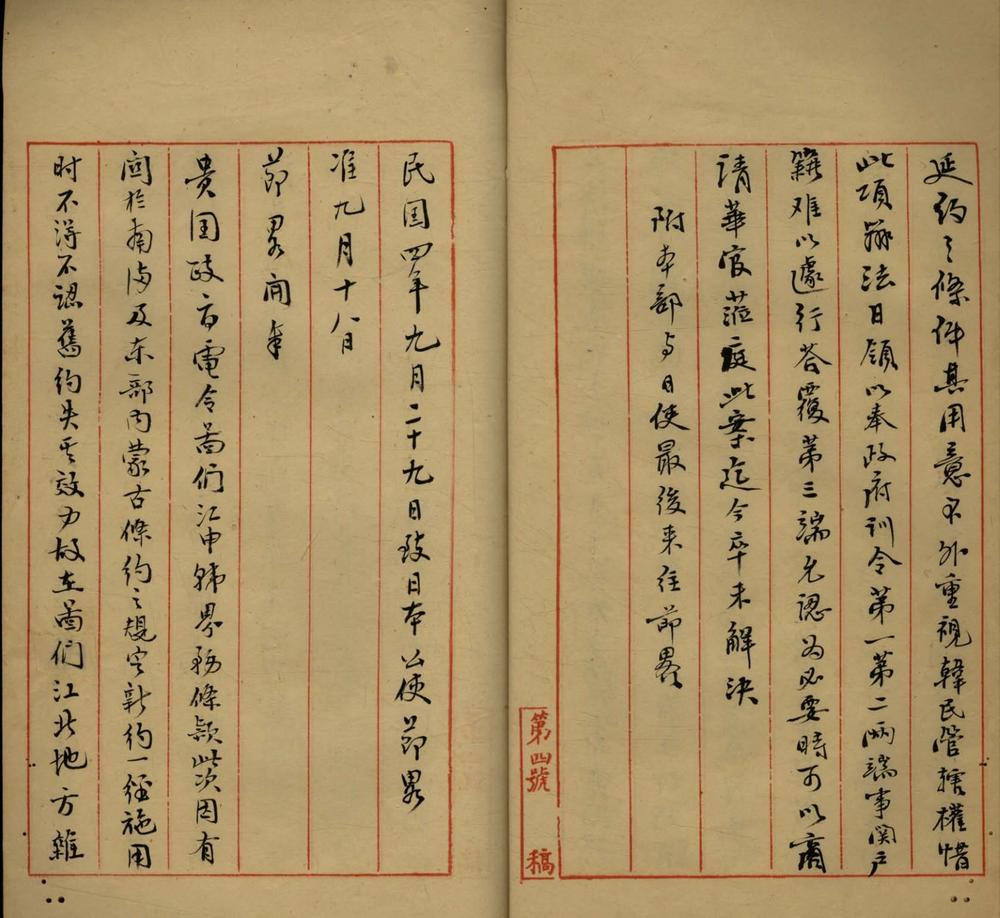 延約之條件其用意不外重視韓民管轄權惜
此項辦法日領以奉政府訓令第一第二兩端事関戶
籍难以遽行荅覆第三端允認為必要時可以商
請華官蒞庭此案迄今卒未解決
附本部与日使最後来往節畧
第四號
稿
民国四年九月二十九日致日本公使節畧
准九月十八日
節畧閱
貴国政府電令圖們江中韩界務條款此次因有
関於南滿及东部内蒙古條約之規定新约一經施用
时不得不認舊约失其效力故在圖們江北地方雜